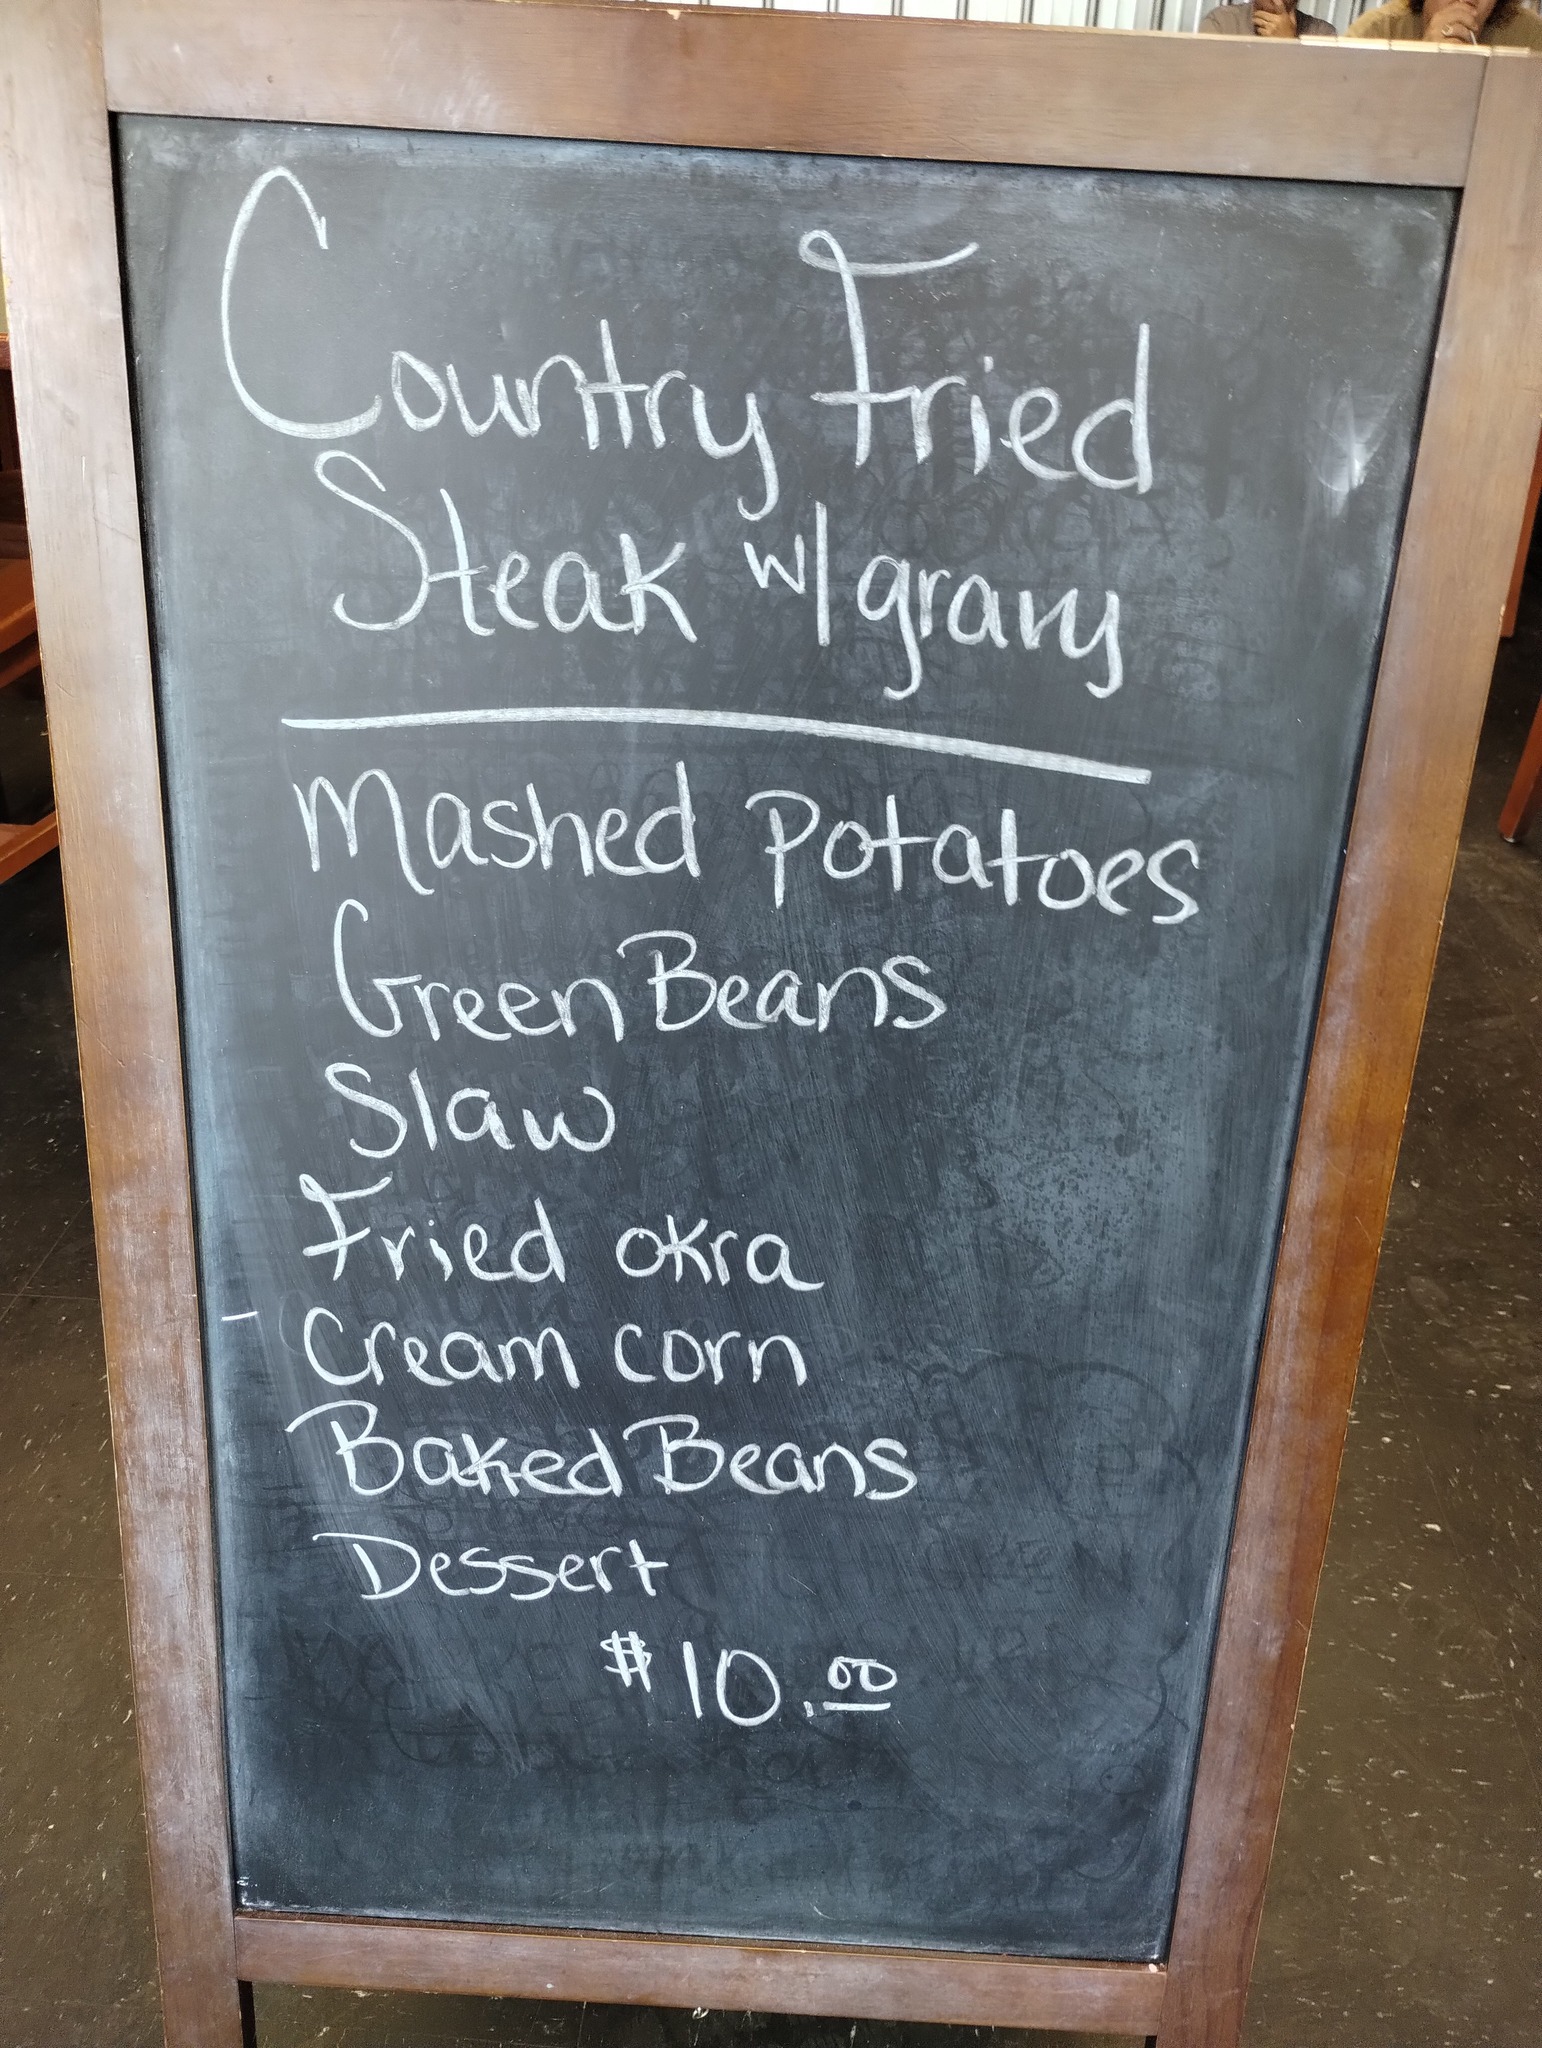 Country Fried
Steak w/gravy
Mashed Potatoes
Green Beans
Slaw
Fried okra
Cream corn
Baked Beans
Dessert
$10.00